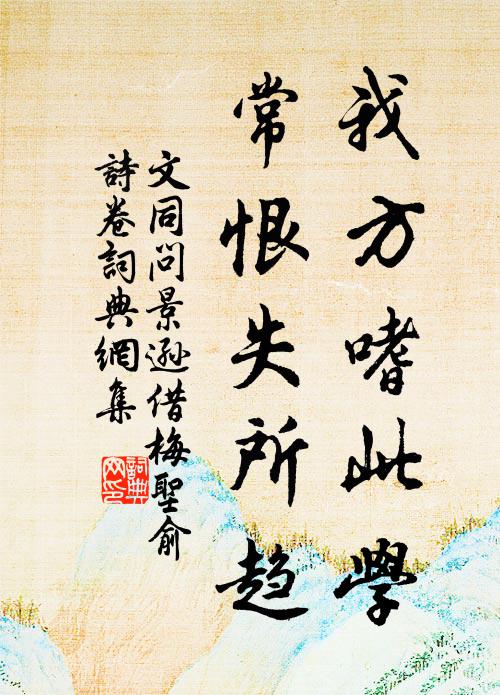 我方嗜此學
常恨失所趋
文同問景遜借梅聖俞
詩卷詞典網集
詞典
网印